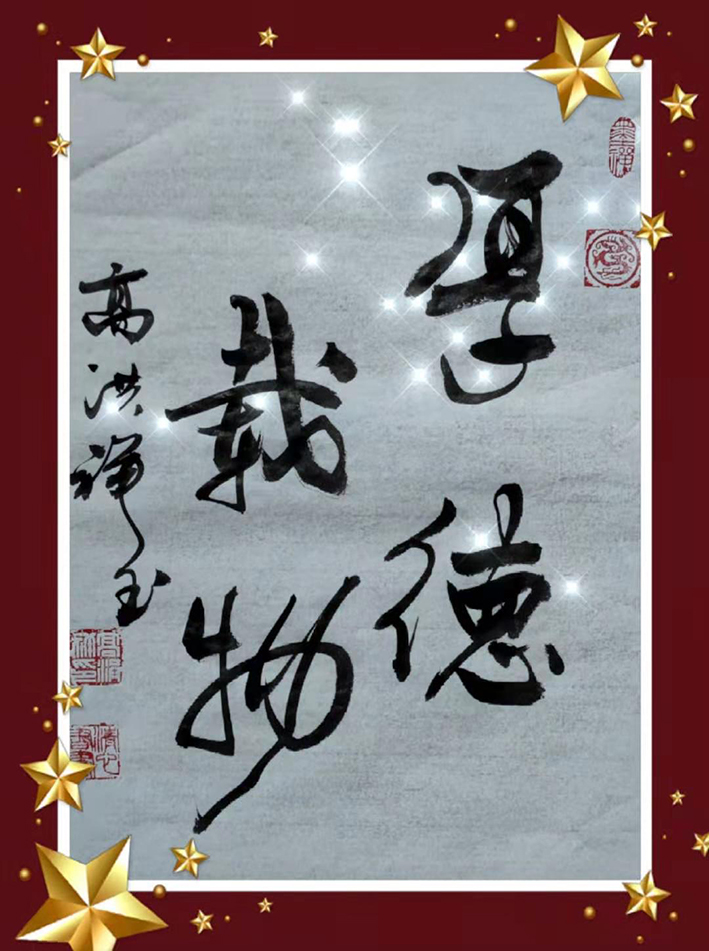 厚德
载物
高洪禅玉